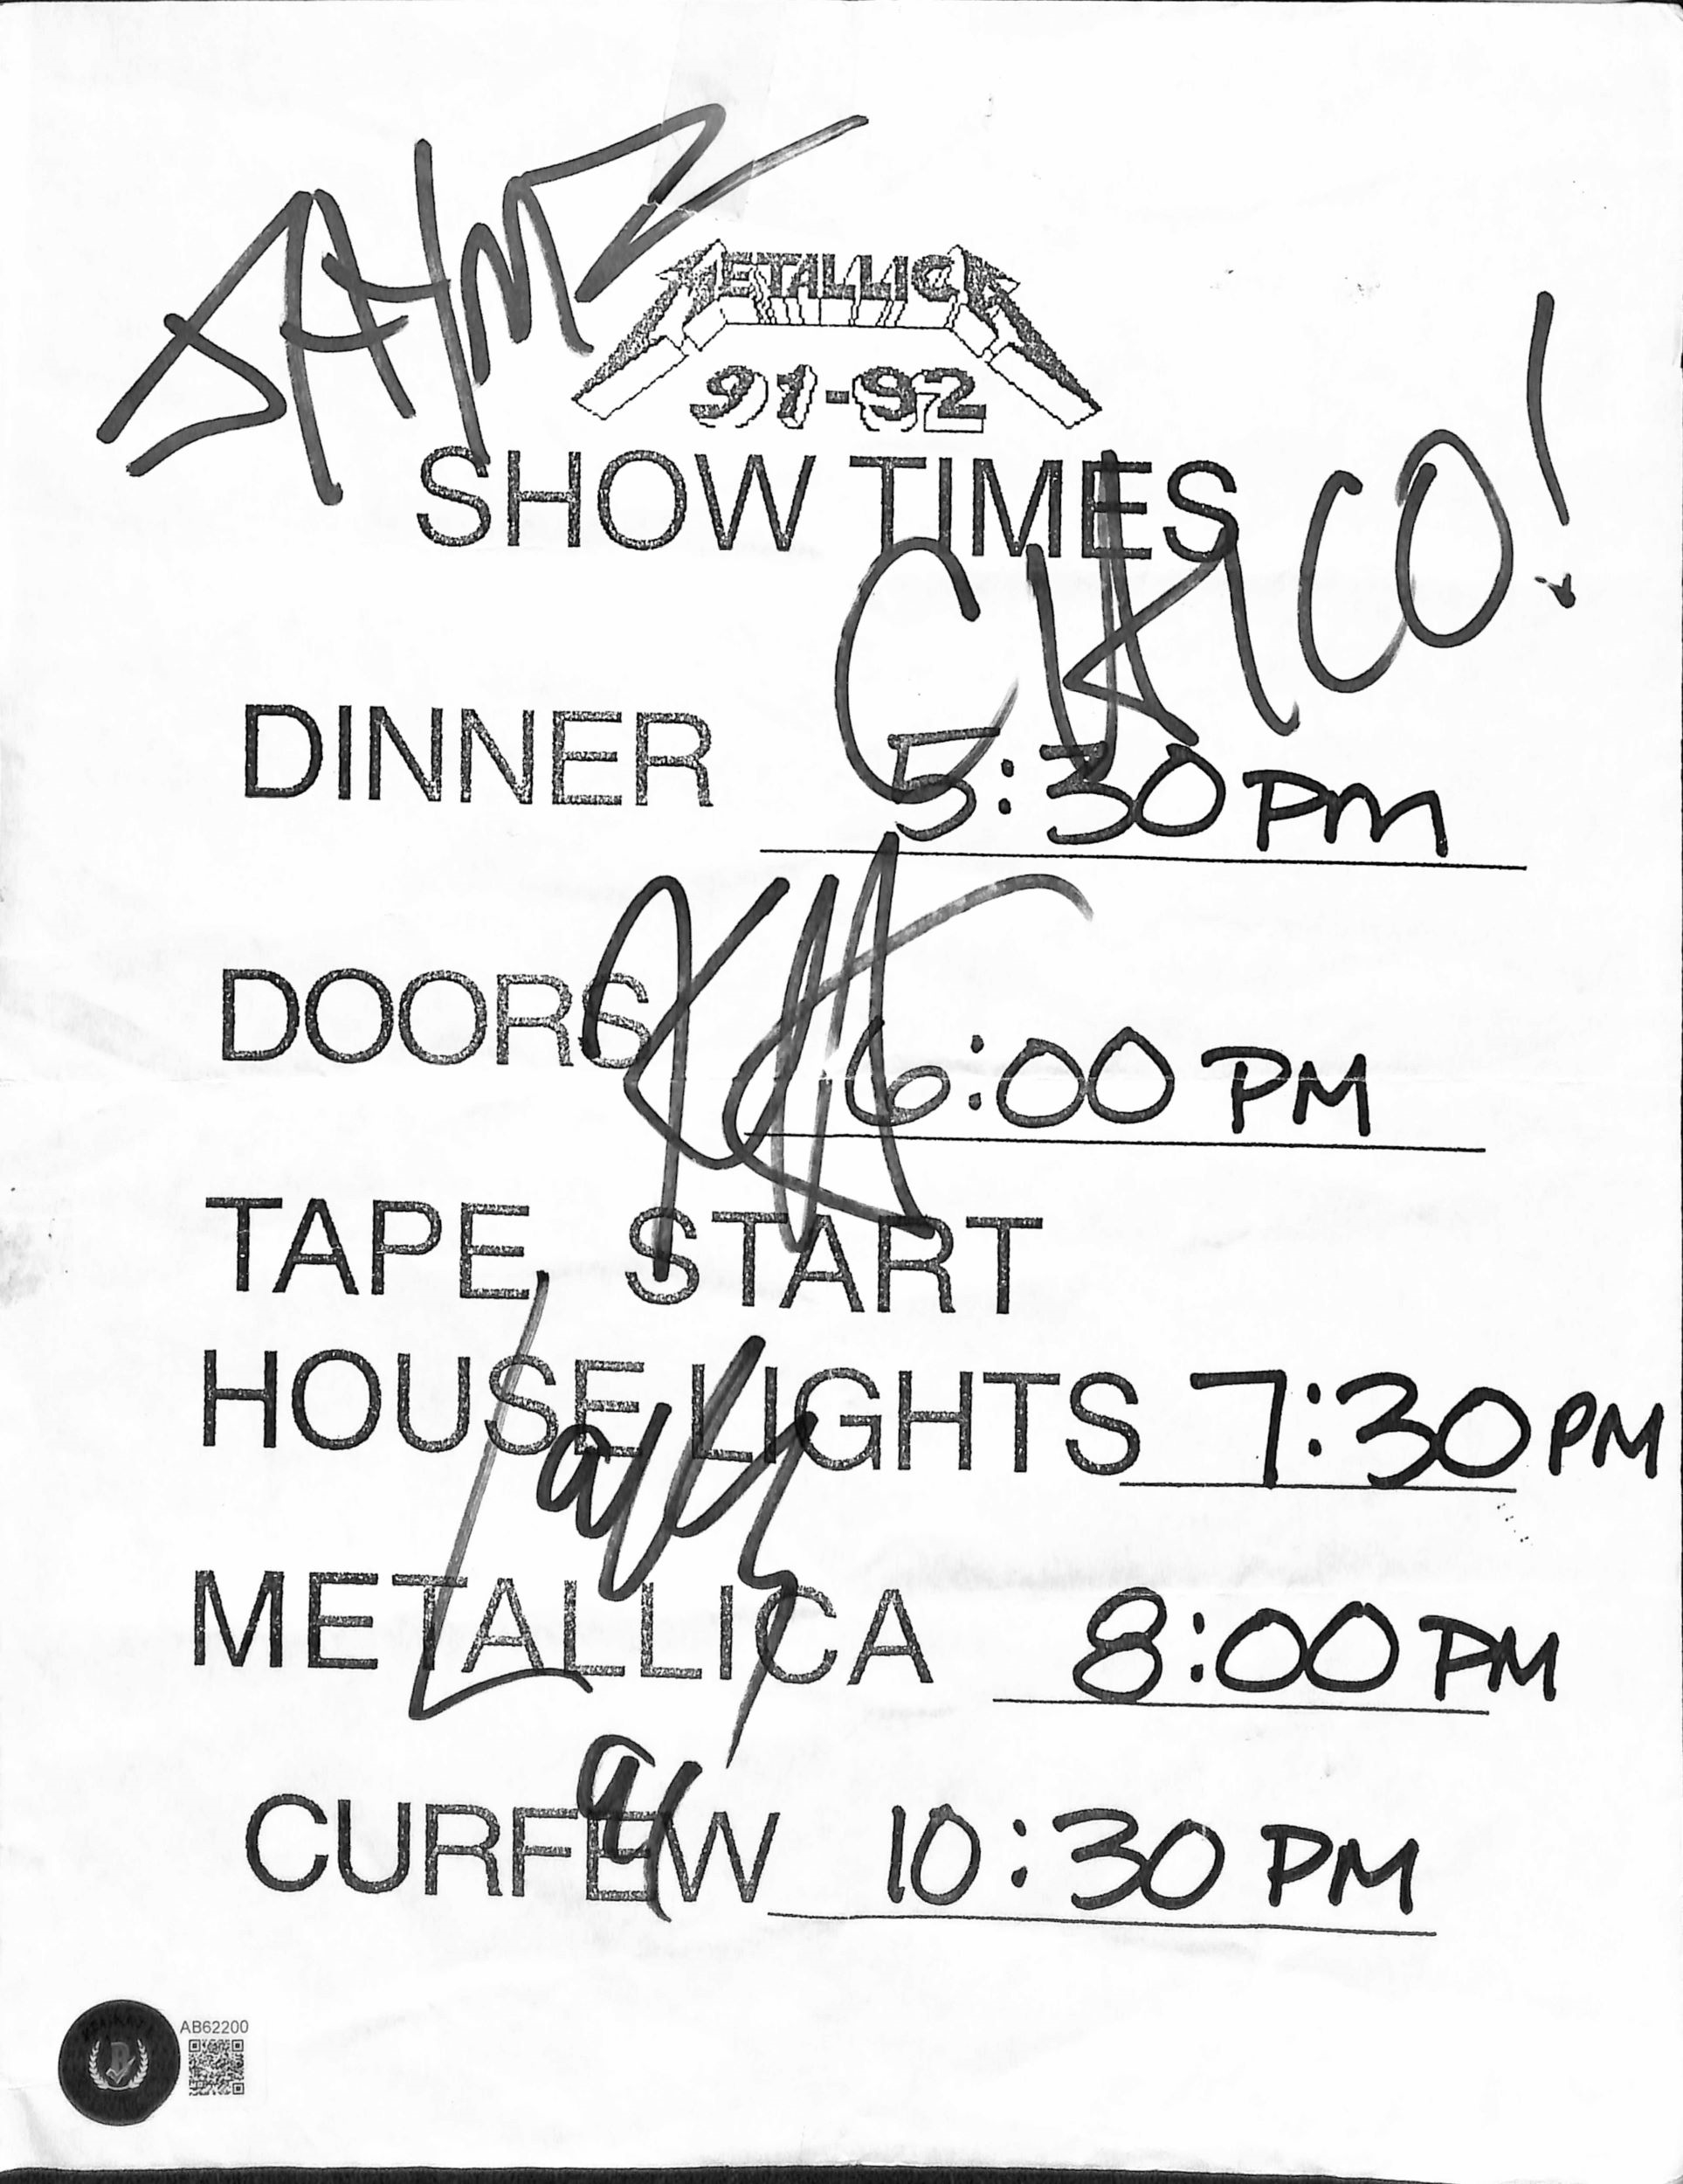 METALLICA
91-92
SHOW TIMES
CHICO!
DINNER 5:30 PM
DOORS 6:00 PM
TAPE START
HOUSE LIGHTS 7:30 PM
METALLICA 8:00 PM
CURFEW 10:30 PM
AB62200